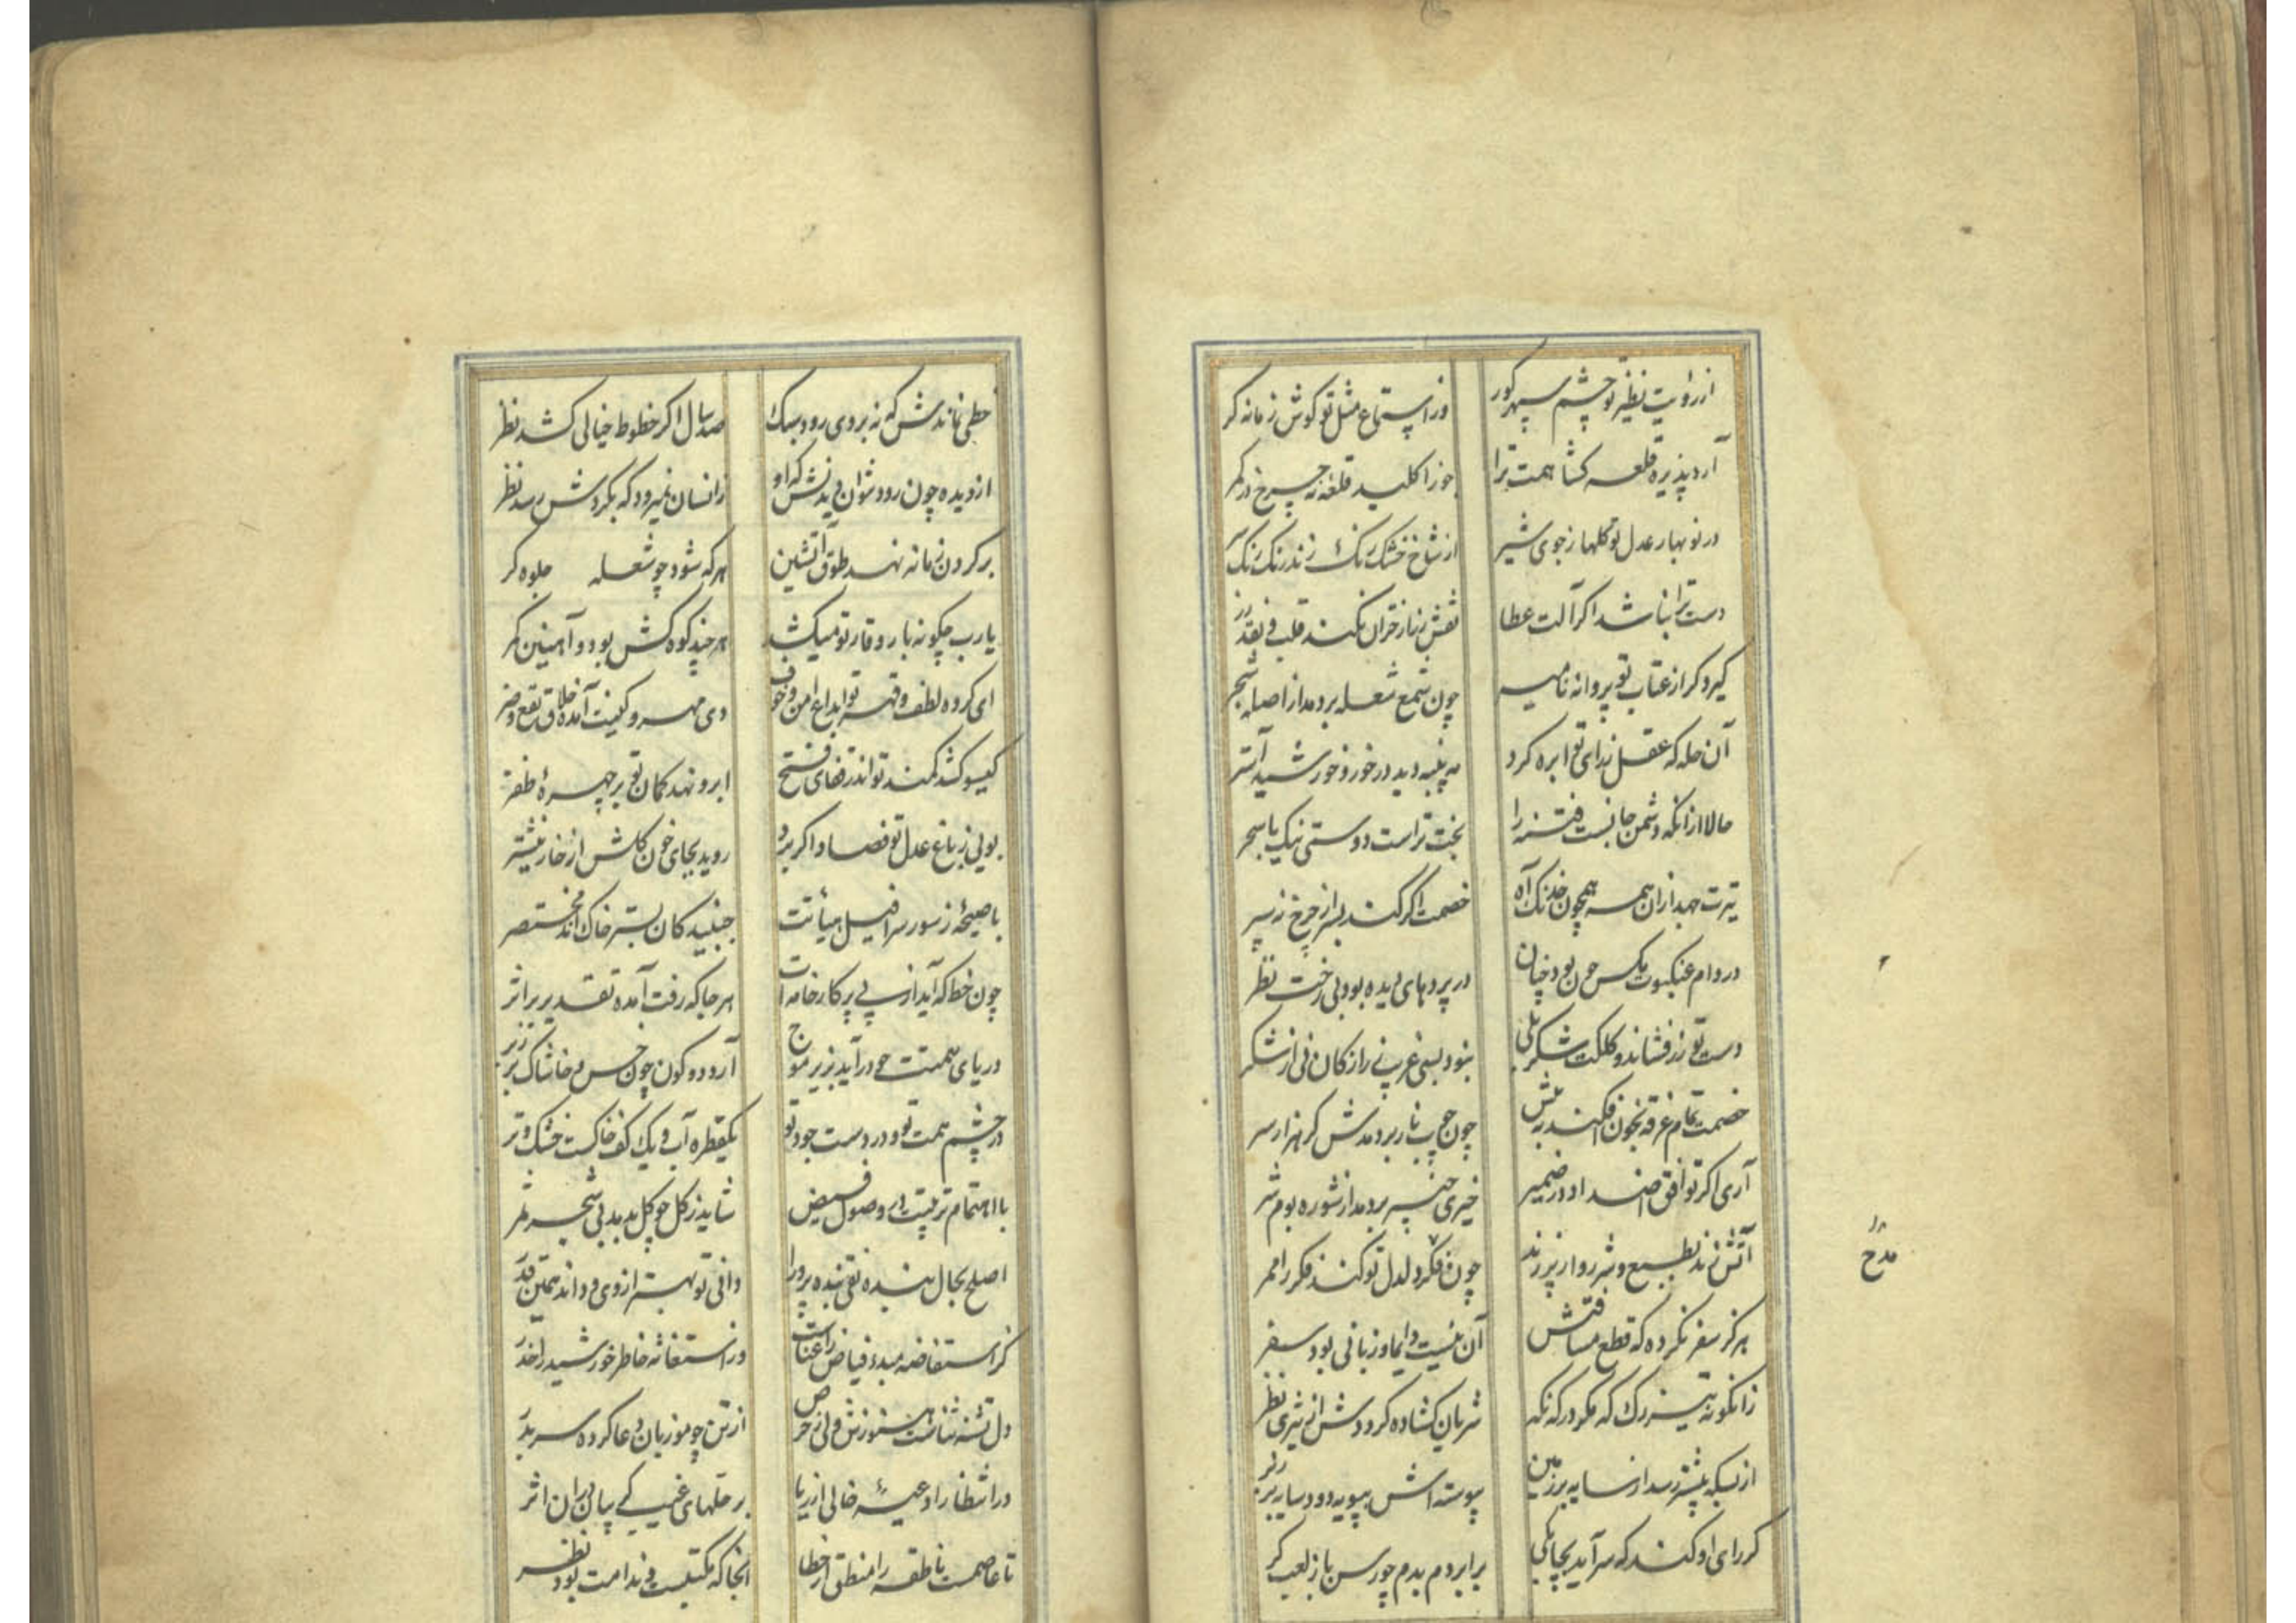 از رؤیت نظیر تو چشم سپهر کور
ور استماع مثل تو کوش زمانه کر
آرد پذیره قلعه کشا همت ترا
جوزا کلید قلعه نه چرخ در کمر
در نوبهار عدل تو کلها ز جوی شیر
از شاخ خشک رنک زند رنک رنک سر
دست ترا نباشد اکر آلت عطا
نقش زر نکند قلب فی بقدر
کیرد کر از عتاب تو پروانه نامیه
چون شمع شعله بر دمد از اصله شجر
آن حله که عقل ز رای تو ابره کرد
مه پنبه دید در خور و خورشید آستر
حالا از انکه دشمن جانیست فتنه را
بخت تراست دوستی نیک با سحر
تیرت جهد از ان همه همچون خدنک آه
خصمت اکر کند بسر از چرخ نه سپر
در دام عنکبوت مکس چون بود چنان
در پردهای دیده بود بی رخت نظر
دست تو زر فشاند و کلکت شکر بلی
نبود بسی غریب زر از کان و نی از شکر
خصمت تمام غرقه بخون افکند به پیش
چون حب نار بر دمدش کر هزار سر
آری اکر توافق اضداد در ضمیر
خیری خیر بر دمد از شوره بوم شر
آتش زند بطبع و شرر وار پر زند
چون فکر دلدل تو کند فکر را ممر
هرکز سفر نکرده که قطع مسافتش
آن نیست دایما و زبانی بود سفر
زانکونه تیز رک که مکر در که تکه
شریان کشاده کرددش از تیزی نظر
از بسکه پیشتر رسد از سایه بر زمین
پیوسته اش بپویه دود سایه بر زبر
کر رای او کند که سر آید بجا یکی
برابر دم بدم چو رسن باز لعب کر
مدح
خطی نماندش که نه بر وی رود سبک
صد سال اکر خطوط خیالی کشد نظر
از دیده چون رود نتوان دیدنش که او
زانسان نمیرود که بکردش رسد نظر
بر کردن زمانه نهد طوق آتشین
هر که شود چو شعله جلوه کر
یارب چکونه بار وقار تو میکشد
هر چند کوه کش بود و آهنین کمر
ای کرده لطف و قهر تو ابداع امن و خوف
وی مهر و کینت آمده خلاق نفع و ضر
کیسو کشد کمند تو اندر قفای فتح
ابرو نهد کمان تو بر چهره ظفر
بوئی ز باغ عدل تو فصاد اکر برد
روید بجای خون کلش از خار نیشتر
با صیحه ز سور سرافیل هیأتت
جنبید کان بستر خاک اند مختصر
چون خط که آید از پی پرکار خامه ات
هر جا که رفت آمده تقدیر بر اثر
دریای همتت چو در آید بزیر موج
آرد دو کون چون خس و خاشاک بر زبر
در چشم همت تو و در دست جود تو
یکقطره آب و یک کف خاکست خشک و تر
با اهتمام تربیتت وصول فیض
شاید ز کل چو کل بدمد بی شجر ثمر
اصلح بحال بنده تقی بنده پرورا
دانی تو بهتر از وی و داند همین قدر
کز استفاضه مبدء فیاض راعنات
ور استغاثه خاطر خورشید را خدر
دل تشنه ثناست هنوزش ولی ز حرص
از تن چو موز بان دعا کرده سر بدر
در انتظار ادعیه خالی از ریا
بر حلهای غیب کی بیان دران اثر
تا عاصمست ناطقه را منطق از خطا
انجا که مکتسب ز ندامت بود نظر